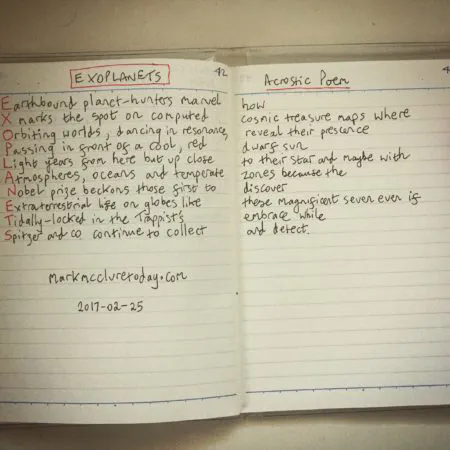 EXOPLANETS 42 Acrostic Poem
Earthbound planet-hunters marvel how
X marks the spot on computed cosmic treasure maps where
Orbiting worlds, dancing in resonance, reveal their presence
Passing in front of a cool, red dwarf sun
Light years from here but up close to their star and maybe with
Atmospheres, oceans and temperate zones because the
Nobel prize beckons those first to discover
Extraterrestrial life on globes like these magnificent seven even if
Tidally-locked in the Trappist's embrace while
Spitzer and co continue to collect and detect.
markmccluretoday.com
2017-02-25